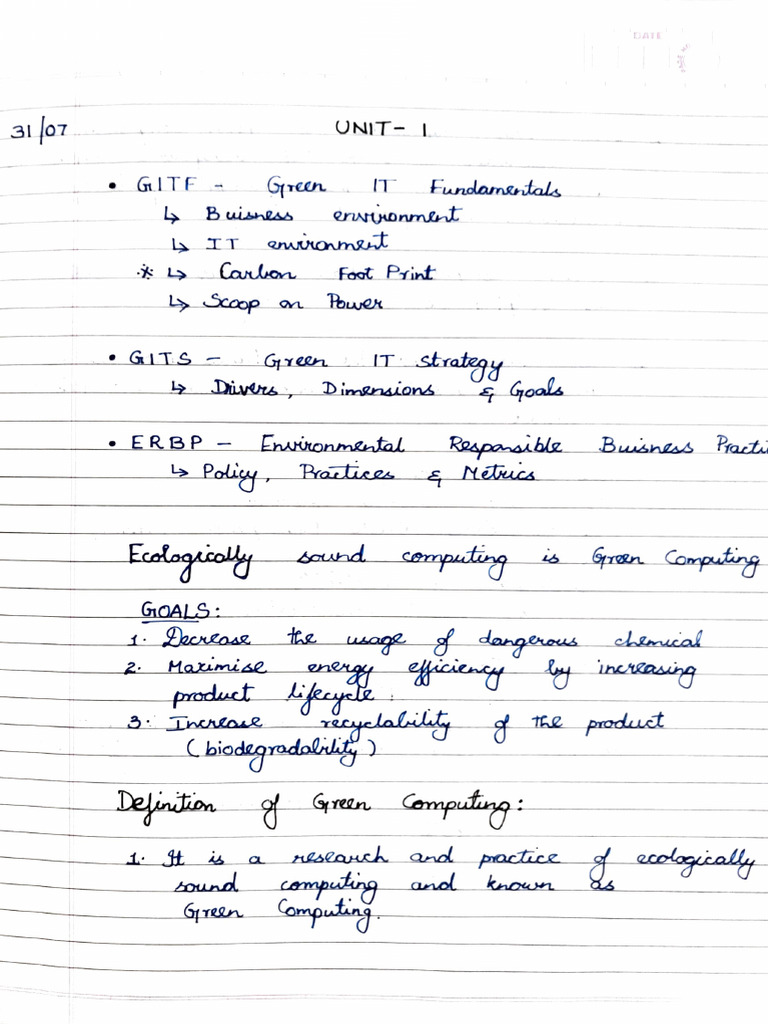 DATE
31/07 UNIT- 1
• GITF - Green IT Fundamentals
↳ Buisness environment
↳ IT environment
* ↳ Carbon Foot Print
↳ Scoop on Power
• GITS - Green IT Strategy
↳ Drivers, Dimensions & Goals
• ERBP - Environmental Responsible Buisness Practi
↳ Policy, Practices & Metrics
Ecologically sound computing is Green Computing
GOALS:
1. Decrease the usage of dangerous chemical
2. Maximise energy efficiency by increasing
product lifecycle.
3. Increase recyclability of the product
(biodegradability)
Definition of Green Computing:
1. It is a research and practice of ecologically
sound computing and known as
Green Computing.